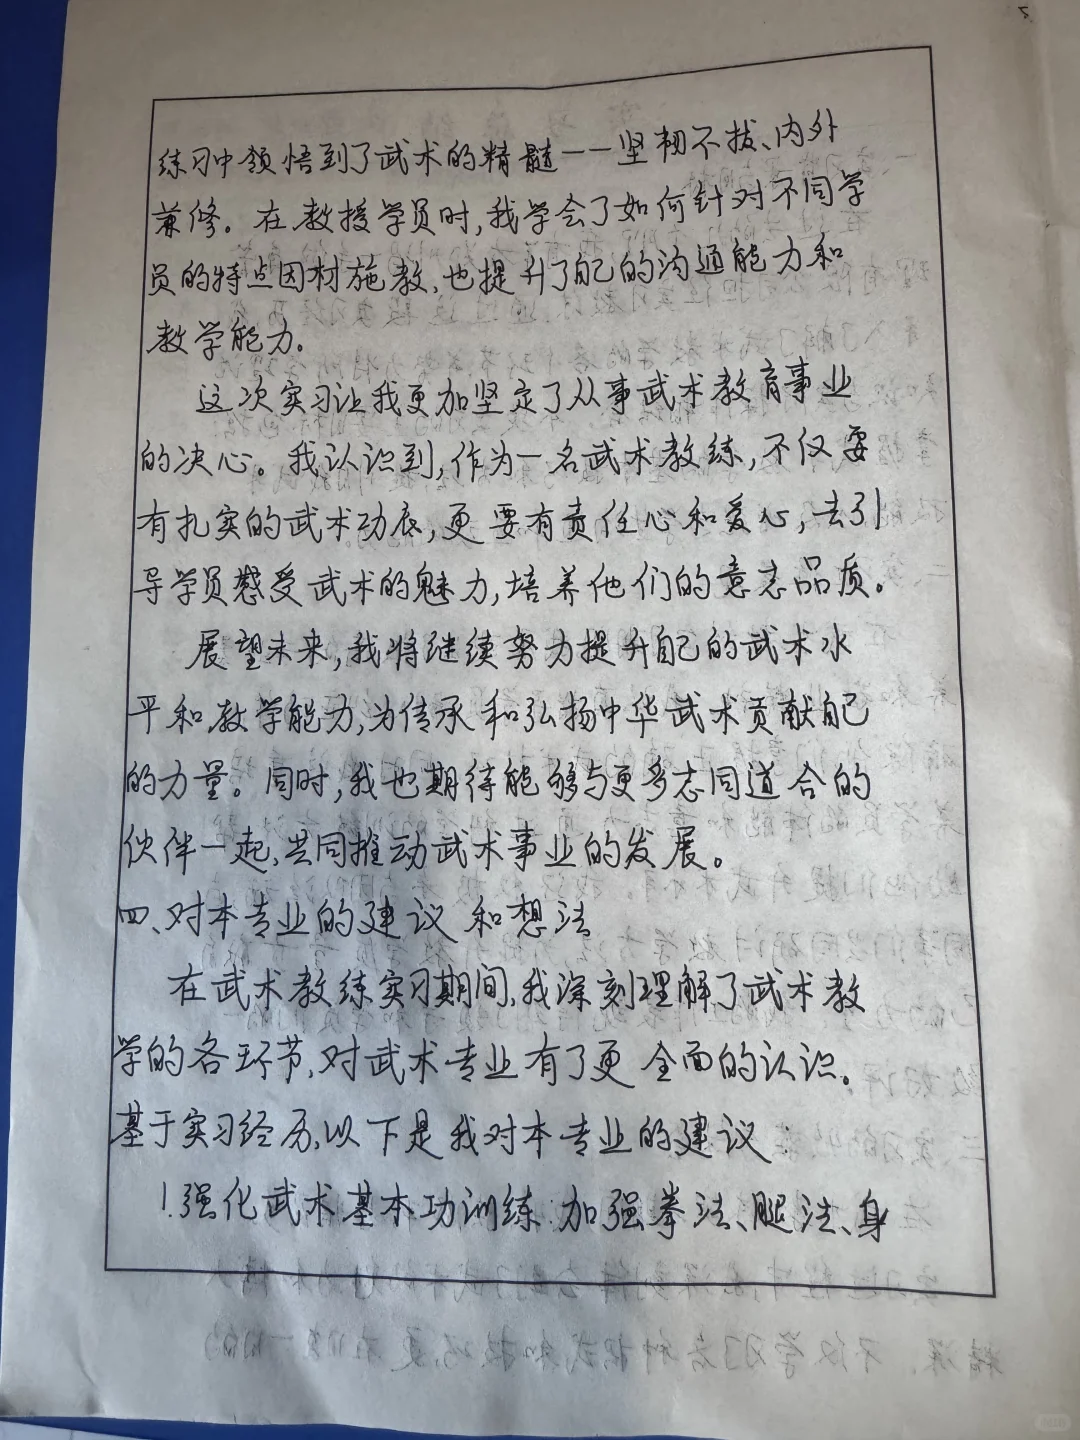 练习中领悟到了武术的精髓——坚韧不拔、内外
兼修。在教授学员时,我学会了如何针对不同学
员的特点因材施教,也提升了自己的沟通能力和
教学能力.
这次实习让我更加坚定了从事武术教育事业
的决心。我认识到,作为一名武术教练,不仅要
有扎实的武术功底,更要有责任心和爱心,去引
导学员感受武术的魅力,培养他们的意志品质。
展望未来,我将继续努力提升自己的武术水
平和教学能力,为传承和弘扬中华武术贡献自己
的力量。同时,我也期待能够与更多志同道合的
伙伴一起,共同推动武术事业的发展。
四、对本专业的建议和想法
在武术教练实习期间,我深刻理解了武术教
学的各环节,对武术专业有了更全面的认识。
基于实习经历,以下是我对本专业的建议:
1.强化武术基本功训练:加强拳法、腿法、身